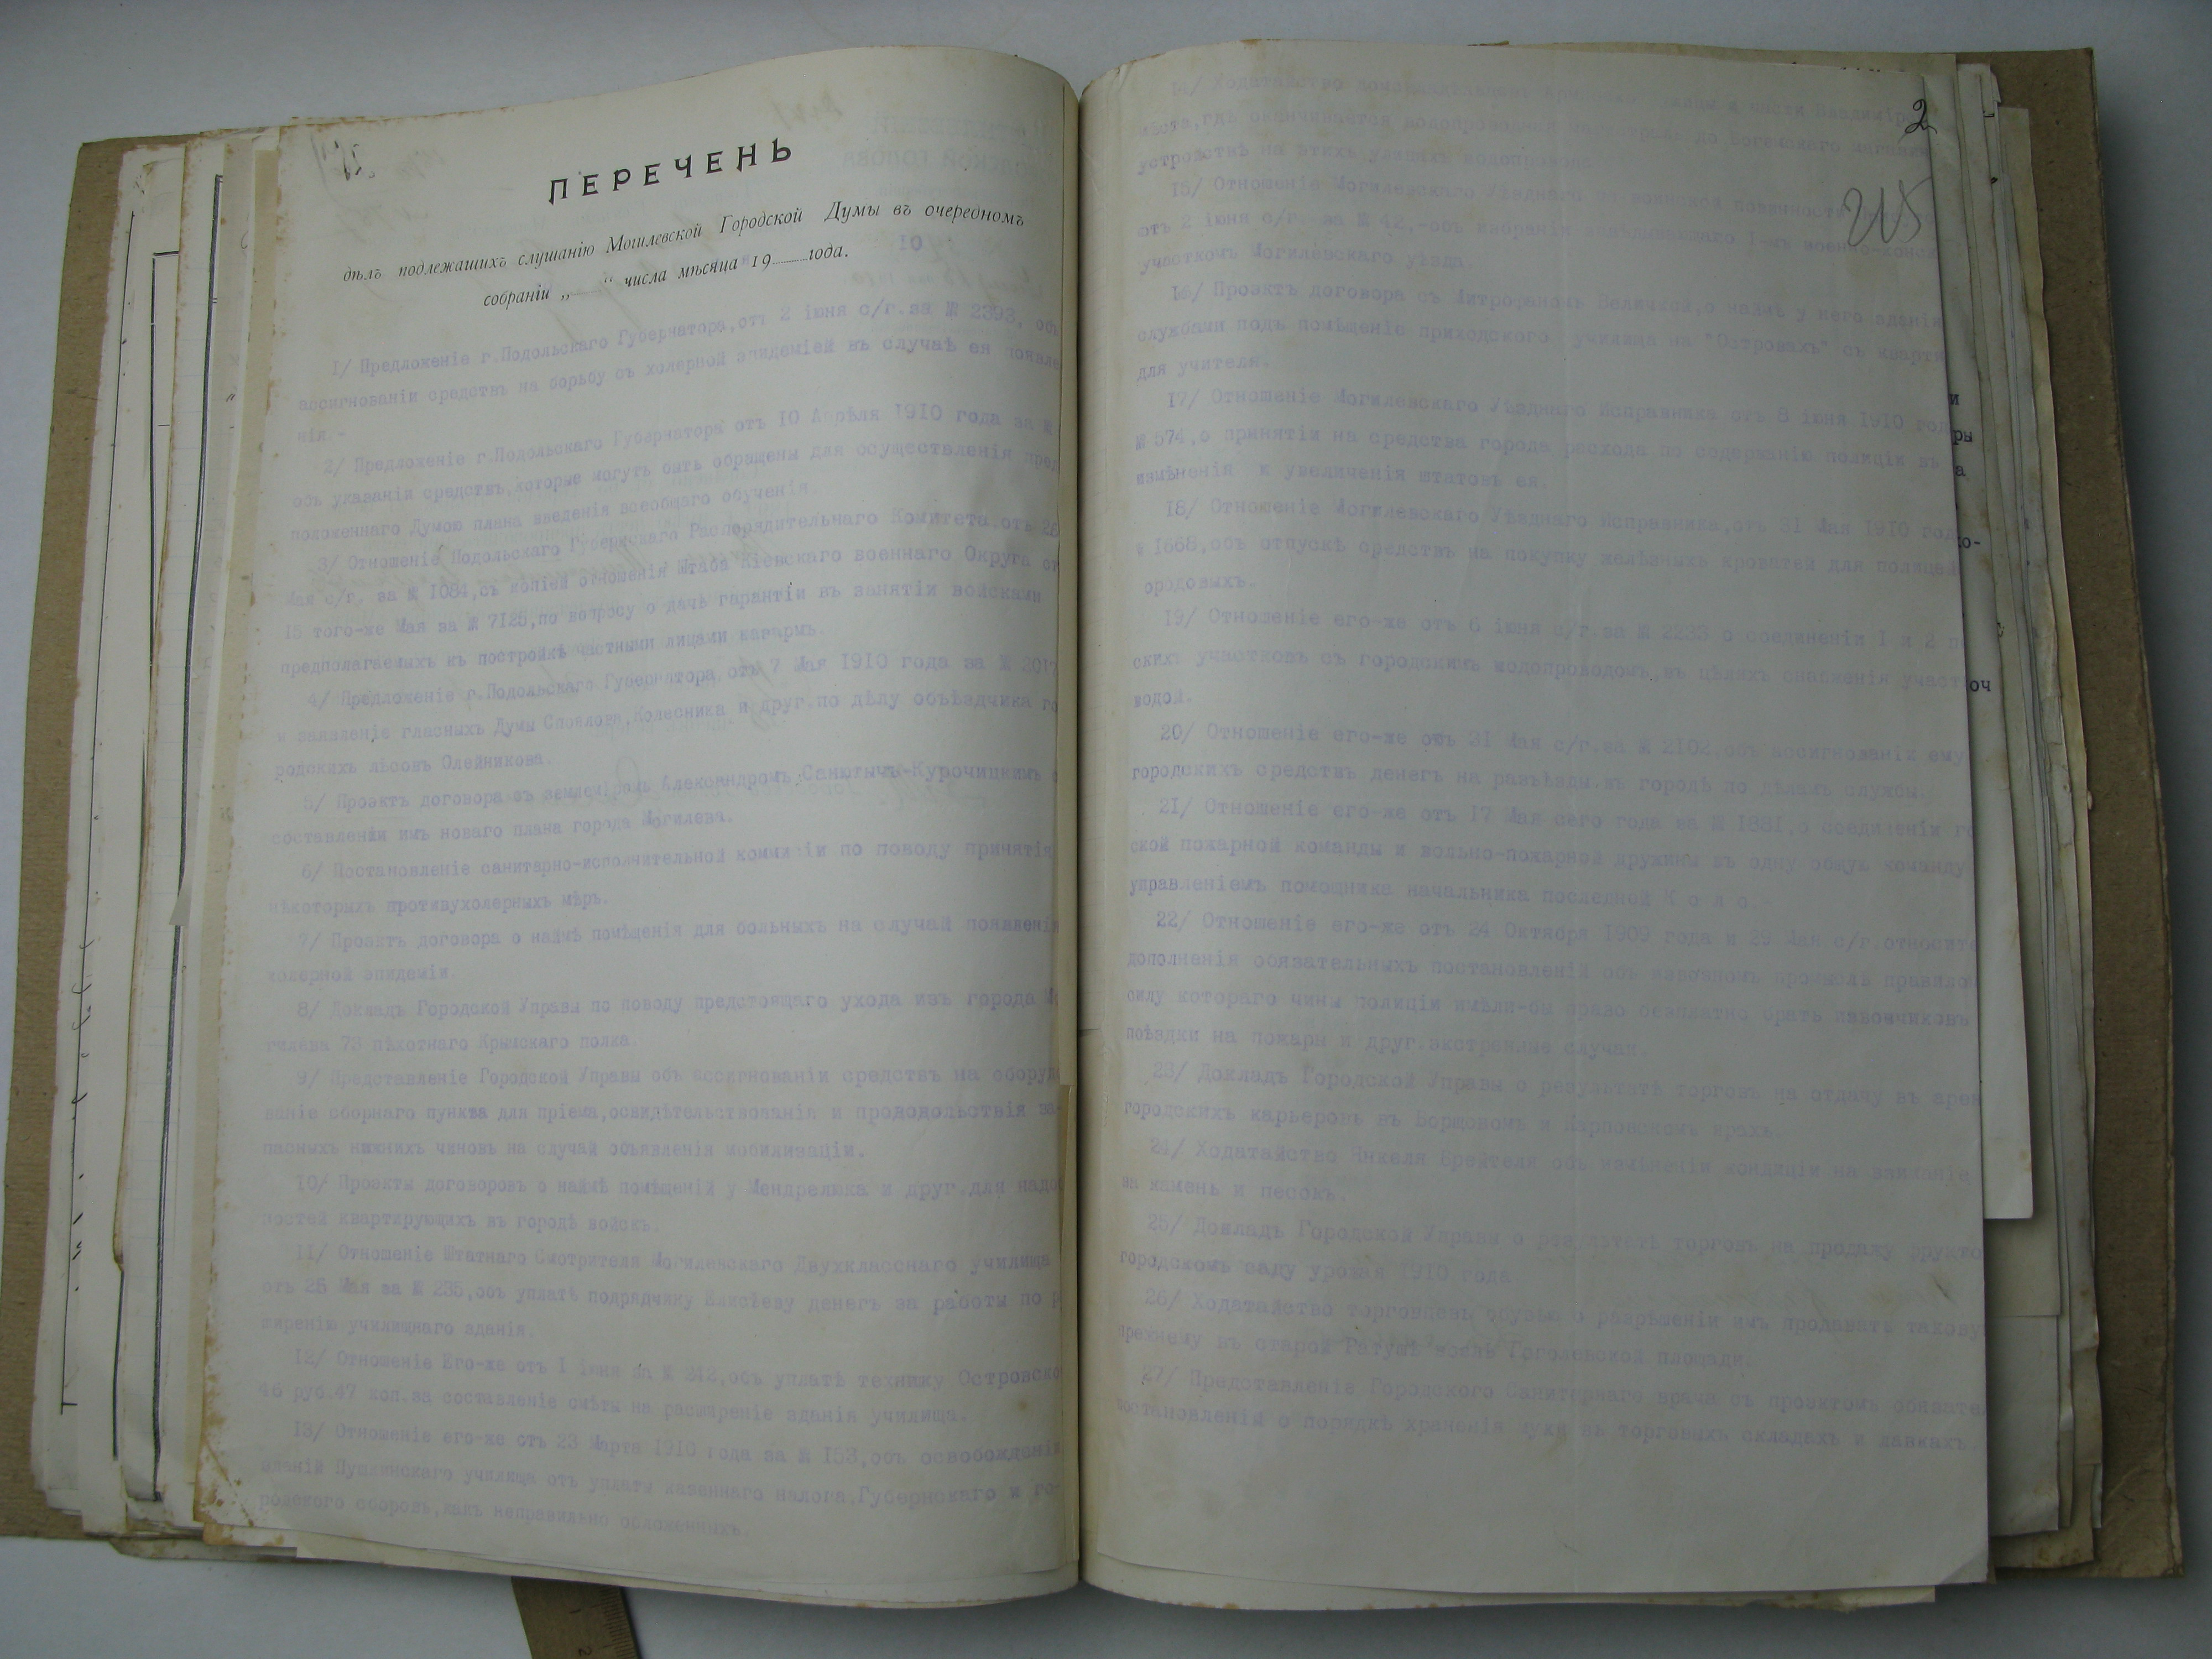 ПЕРЕЧЕНЬ
дѣлъ подлежащихъ слушанію Могилевской Городской Думы въ очередномъ
собраніи „ “ числа мѣсяца 19 10 года.
1/ Предложеніе г.Подольскаго Губернатора,отъ 2 іюня с/г.за № 2393, объ
ассигнованіи средствъ на борьбу съ холерной эпидеміей въ случаѣ ея появле
нія.-
2/ Предложеніе г.Подольскаго Губернатора отъ 10 Апрѣля 1910 года за №
объ указаніи средствъ,которые могутъ быть обращены для осуществленія пред
положеннаго Думою плана введенія всеобщаго обученія.
3/ Отношеніе Подольскаго Губернскаго Распорядительнаго Комитета,отъ 28
Мая с/г. за № 1084,съ копіей отношенія Штаба Кіевскаго военнаго Округа от
15 того-же Мая за № 7125,по вопросу о дачѣ гарантіи въ занятіи войсками
предполагаемыхъ къ постройкѣ частными лицами казармъ.
4/ Предложеніе г.Подольскаго Губернатора,отъ 7 Мая 1910 года за № 2017
и заявленіе гласныхъ Думы Колесника и друг.по дѣлу объѣздчика го
родскихъ лѣсовъ Олейникова.
5/ Проэктъ договора съ землемѣромъ Александромъ Санютичъ-Курочицкимъ о
составленіи имъ новаго плана города Могилева.
6/ Постановленіе санитарно-исполнительной коммисіи по поводу принятія
нѣкоторыхъ противухолерныхъ мѣръ.
7/ Проэктъ договора о наймѣ помѣщенія для больныхъ на случай появленія
холерной эпидеміи.
8/ Докладъ Городской Управы по поводу предстоящаго ухода изъ города Мо
гилева 73 пѣхотнаго Крымскаго полка.
9/ Представленіе Городской Управы объ ассигнованіи средствъ на оборудо
ваніе сборнаго пункта для пріема,освидѣтельствованія и продовольствія за-
пасныхъ нижнихъ чиновъ на случай объявленія мобилизаціи.
10/ Проэкты договоровъ о наймѣ помѣщеній у Мендрелюка и друг.для надоб
ностей квартирующихъ въ городѣ войскъ.
11/ Отношеніе Штатнаго Смотрителя Могилевскаго Двухкласснаго училища
отъ 25 Мая за № 235,объ уплатѣ подрядчику Елисѣеву денегъ за работы по р
ширенію училищнаго зданія.
12/ Отношеніе Его-же отъ 1 іюня за № 242,объ уплатѣ технику Островско
46 руб.47 коп.за составленіе смѣты на расширеніе зданія училища.
13/ Отношеніе его-же отъ 23 Марта 1910 года за № 153,объ освобожденіи
зданій Пушкинскаго училища отъ уплаты казеннаго налога,Губернскаго и го-
родского сборовъ,какъ неправильно обложенныхъ.
2
215
14/ Ходатайство улицы и части Владимірс
мѣста,гдѣ оканчивается водопроводная магистраль до
устройствѣ на этихъ улицахъ водопровода.
15/ Отношеніе Могилевскаго Уѣзднаго по воинской повинности
отъ 2 іюня с/г. за № 42,-объ избраніи 1-мъ военно-конск
участкомъ Могилевскаго уѣзда.
16/ Проэктъ договора съ Митрофаномъ Величкой,о наймѣ у него зданія
службами подъ помѣщеніе приходского училища на "Островахъ" съ кварти
для учителя.
17/ Отношеніе Могилевскаго Уѣзднаго Исправника отъ 8 іюня 1910 год
№ 574,о принятіи на средства города расхода по содержанію полиціи въ
измѣненія к увеличенія штатовъ ея.
18/ Отношеніе Могилевскаго Уѣзднаго Исправника,отъ 31 Мая 1910 год
№ 1658,объ отпускѣ средствъ на покупку желѣзныхъ кроватей для полицей
ородовыхъ.
19/ Отношеніе его-же отъ 6 іюня с/г.за № 2233 о соединеніи 1 и 2 п
скихъ участковъ съ городскимъ водопроводомъ,въ цѣляхъ снабженія участ
водой.
20/ Отношеніе его-же отъ 31 Мая с/г.за № 2102,объ ассигнованіи ему
городскихъ средствъ денегъ на разъѣзды въ городѣ по дѣламъ службы.
21/ Отношеніе его-же отъ 17 Мая сего года за № 1881,о соединеніи го
ской пожарной команды и вольно-пожарной дружины въ одну общую команду
управленіемъ помощника начальника послѣдней
22/ Отношеніе его-же отъ 24 Октября 1909 года и 29 Мая с/г.относит
дополненія обязательныхъ постановленій объ извозномъ промыслѣ правило
силу котораго чины полиціи имѣли-бы право безплатно брать извозчиковъ
поѣздки на пожары и друг.экстренные случаи.
23/ Докладъ Городской Управы о результатѣ торговъ на отдачу въ арен
городскихъ карьеровъ въ Борщовомъ и Карповскомъ ярахъ.
24/ Ходатайство Янкеля Брейтеля объ измѣненіи кондиціи на взиманіе
за камень и песокъ.
25/ Докладъ Городской Управы о результатѣ торговъ на продажу фрукто
городскомъ саду урожая 1910 года
26/ Ходатайство торговцевъ обувью о разрѣшеніи имъ продавать такову
прежнему въ старой Ратушѣ возлѣ Гоголевской площади.
27/ Представленіе Городского Санитарнаго врача съ проэктомъ обязател
постановленія о порядкѣ храненія муки въ торговыхъ складахъ и лавкахъ.